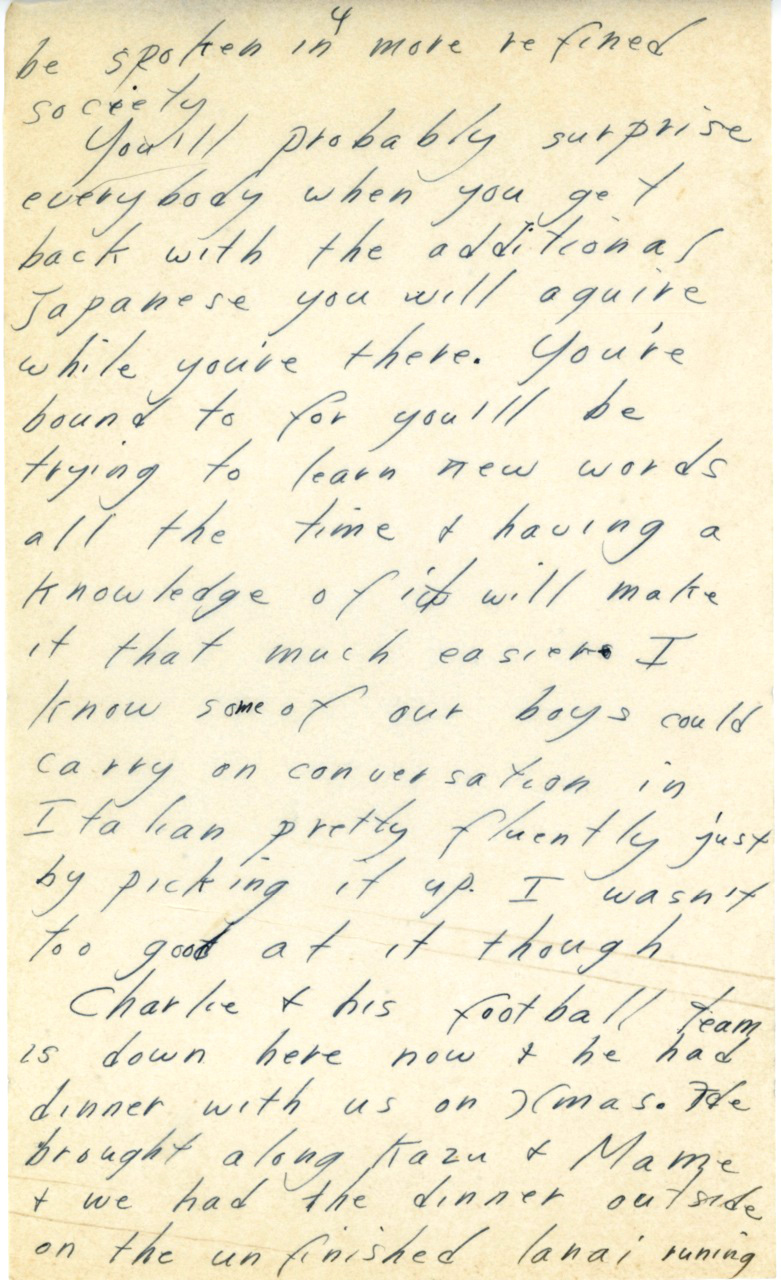 4
be spoken in more refined
society
You'll probably surprise
everybody when you get
back with the additional
Japanese you will aquire
while you're there. You're
bound to for you'll be
trying to learn new words
all the time & having a
knowledge of it will make
it that much easier. I
know some of our boys could
carry on conversation in
Italian pretty fluently just
by picking it up. I wasn't
too good at it though
Charlie & his football team
is down here now & he had
dinner with us on Xmas. He
brought along Kazu & Mame
& we had the dinner outside
on the unfinished lanai runing